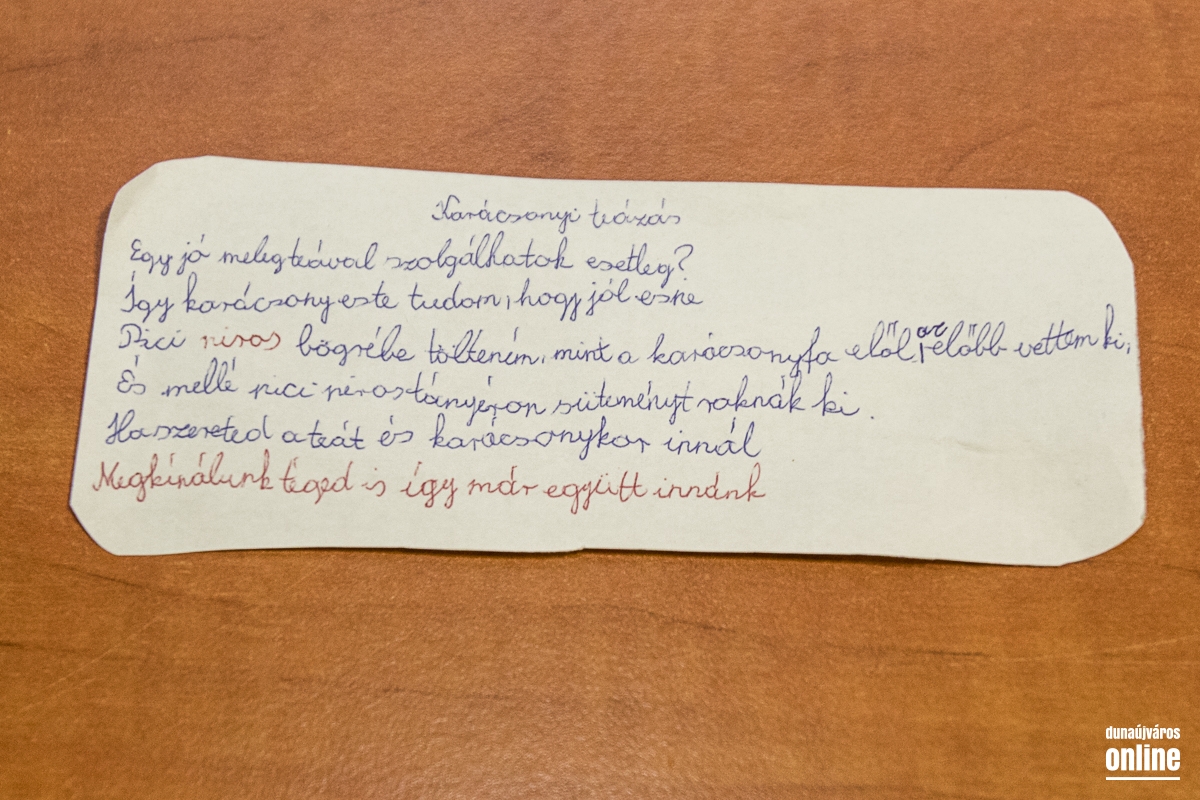 Karácsonyi teázás
Egy jó meleg teával szolgálhatok esetleg?
Így karácsony este tudom, hogy jól esne
Pici piros bögrébe tölteném, mint a karácsonyfa elől, az előbb vettem ki,
És mellé pici piros tányéron süteményt raknák ki.
Ha szereted a teát és karácsonykor innál
Megkínálunk téged is így már együtt innánk
dunaújváros
online